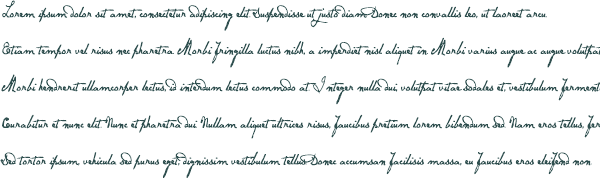 Lorem ipsum dolor sit amet, consectetur adipiscing elit Suspendisse ut justo diam Donec non convallis leo, ut laoreet arcu.
Etiam tempor vel risus nec pharetra Morbi fringilla luctus nibh, a imperdiet nisl aliquet in Morbi varius augue ac augue volutpat
Morbi hendrerit ullamcorper lectus, id interdum lectus commodo at Integer nulla dui, volutpat vitae sodales et, vestibulum ferment
Curabitur et nunc elit Nunc et pharetra dui Nullam aliquet ultrices risus, faucibus pretium lorem bibendum sed Nam eros tellus, fer
Sed tortor ipsum, vehicula sed purus eget, dignissim vestibulum tellus Donec accumsan facilisis massa, eu faucibus eros eleifend non